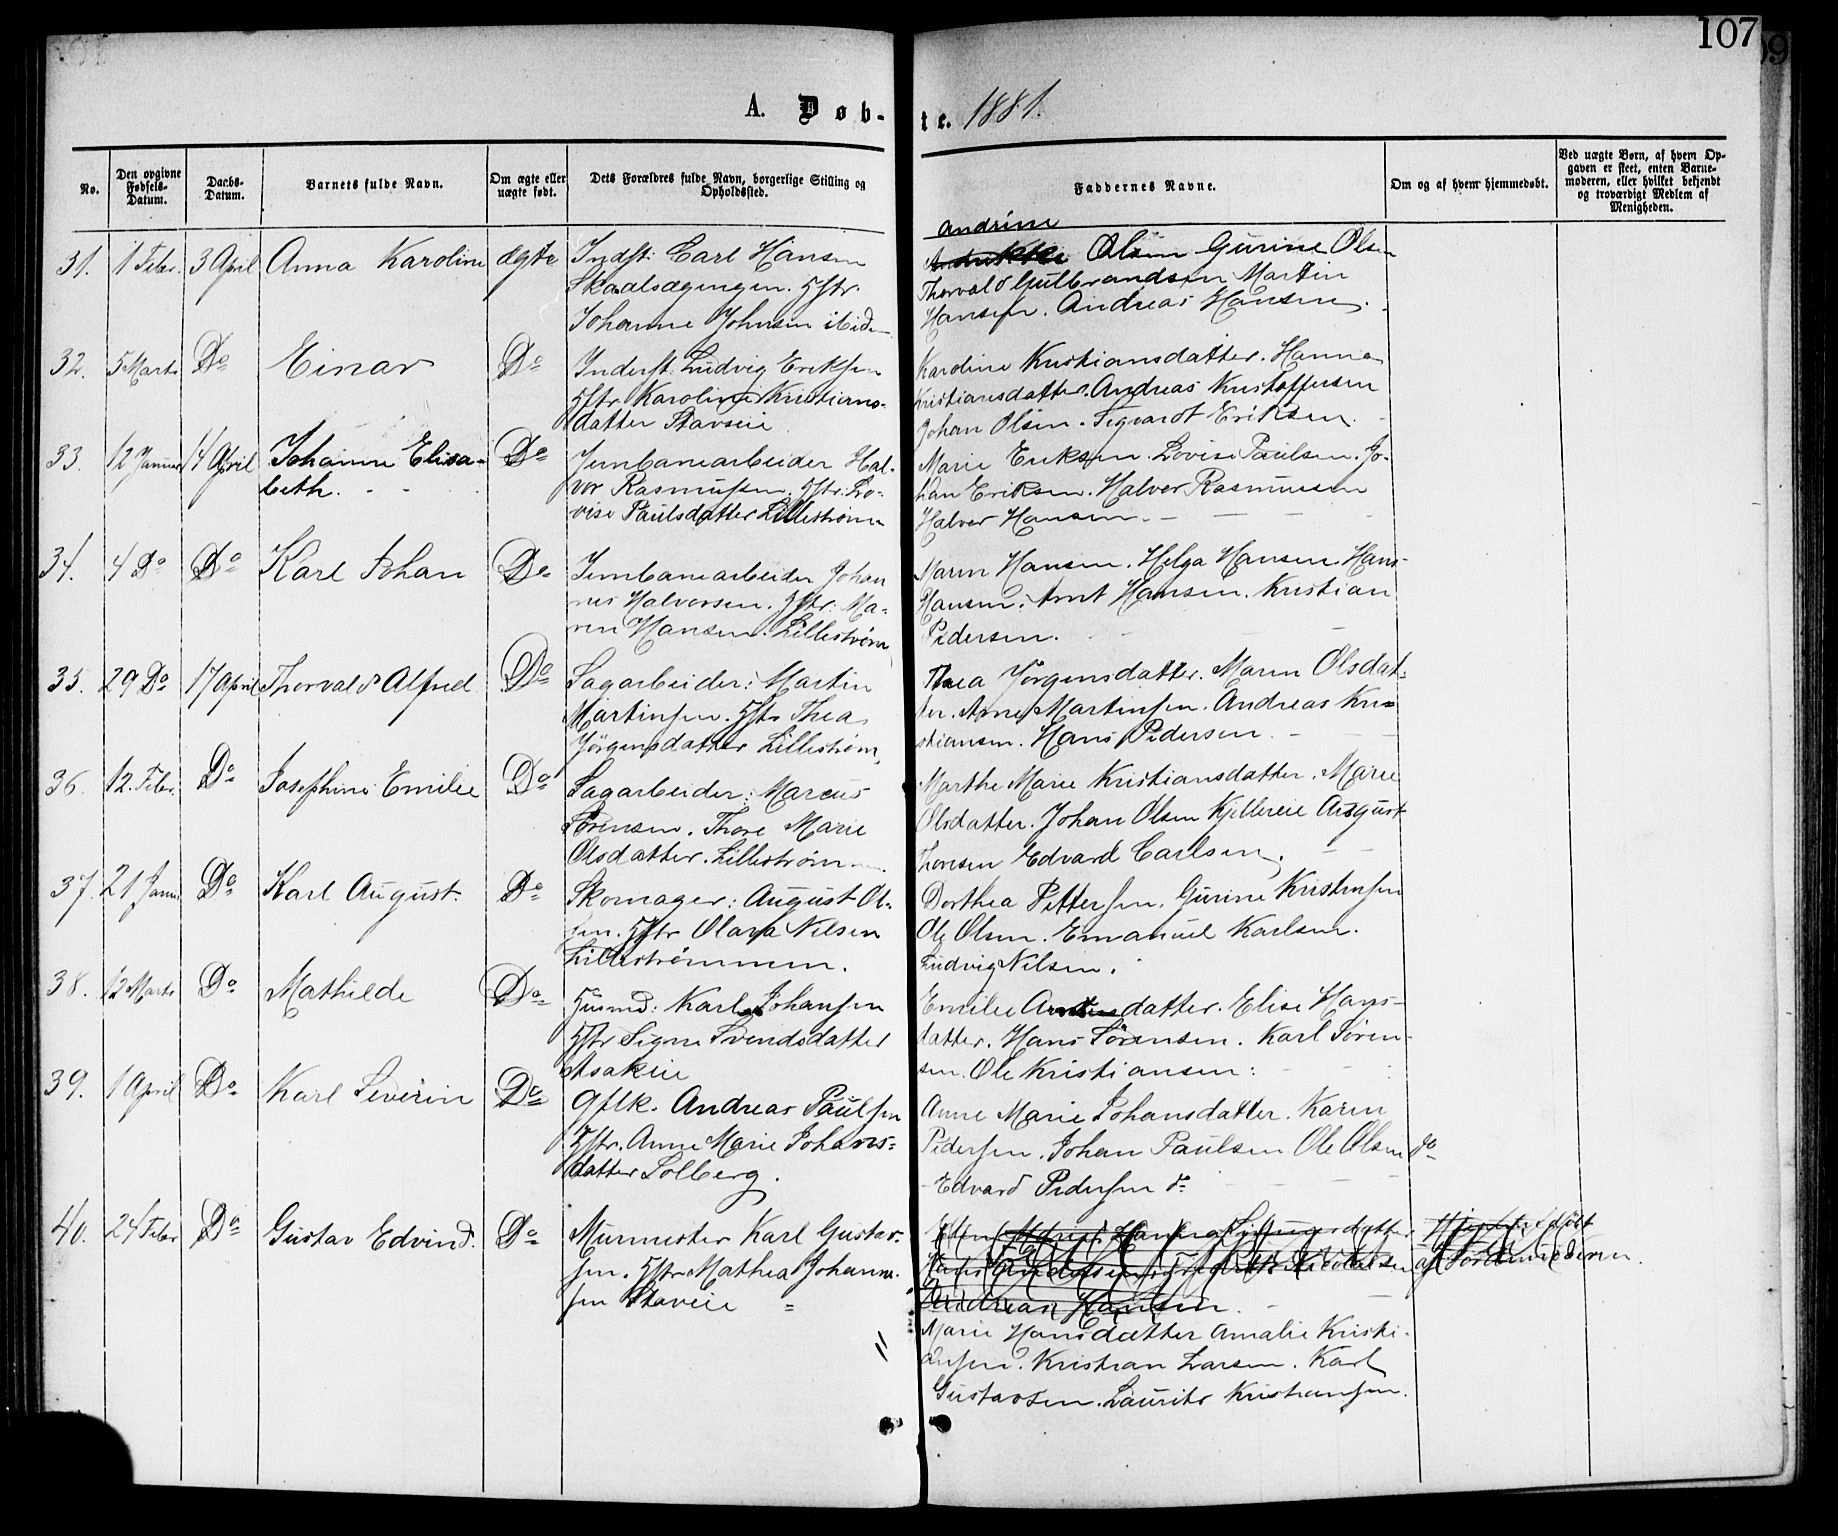 107
A. Døb-
te. 1881.
No.
Den opgivne Fødsels-Datum.
Daabs-Datum.
Barnets fulde Navn.
Om ægte eller uægte født.
Dets Forældres fulde Navn, borgerlige Stilling og Opholdssted.
Faddernes Navne.
Om og af hvem hjemmedøbt.
Ved uægte Børn, af hvem Op-
gaven er skeet, enten Barne-
moderen, eller hvilket bekjendt
og troværdigt Medlem af
Menigheden.
31. 1 Febr. 3 April Anna Karoline ægte Indst: Carl Hansen
Hstr.
Johanne Johnsen ibid
Andrine
Olsen Gurine Olsen
Thorvald Gulbrandsen Martin
Hansen. Andreas Hansen.
32. 5 Marts Do Einar Do Inderst: Ludvig Eriksen
Hstr Karoline Kristians-
datter Stavseie
Karoline Kristiansdatter. Hanna
Kristiansdatter. Andreas Kristoffersen
Johan Olsen. Sigvardt Eriksen.
33. 12 Januar 14 April Johanne Elisa- Do Jernbanearbeider Hal-
beth. vor Rasmussen. Hstr: Lo-
vise Paulsdatter Lillestrøm
Marie Eriksen. Lovise Paulsen. Jo-
han Eriksen. Halver Rasmussen
Halver Hansen.
34. 4 Do Do Karl Johan Do Jernbanearbeider Johan
nes Halvorsen. Hstr: Ma-
ren Hansen. Lillestrøm
Maren Hansen. Helga Hansen. Hans
Hansen. Arnt Hansen. Kristian
Pedersen.
35. 29 Do 17 April Thorvald Alfred Do Sagarbeider: Martin
Martinsen. Hstr Thea
Jörgensdatter Lillestrøm
Thea Jörgensdatter. Maren Olsdat-
ter. Arne Martinsen. Andreas Kri-
stiansen. Hans Pedersen.
36. 12. Febr. Do Josephine Emilie Do Sagarbeider: Marcus
Sörensen. Thore Marie
Olsdatter. Lillestrøm
Marthe Marie Kristiansdatter. Marie
Olsdatter. Johan Olsen Kjellereie August
Thoresen Edvard Carlsen.
37. 21 Janu Do Karl August. Do Skomager: August Ol-
sen. Hstr Olava Nilsen
Lillestrømmen.
Dorthea Pettersen. Gurine Kristensen
Ole Olsen. Emanuel Karlsen.
Ludvig Nilsen.
38. 12 Marts Do Mathilde Do Husmd: Karl Johansen
Hstr Signe Svendsdatter
Asakeie
Emilie datter. Elise Hans-
datter. Hans Sörensen. Karl Sören-
sen. Ole Kristiansen:
39. 1 April Do Karl Severin Do Gftk. Andreas Paulsen
Hstr. Anne Marie Johans-
datter Solberg.
Anne Marie Johansdatter. Karen
Pedersen. Johan Paulsen Ole Olsen do
Edvard Pedersen do
40. 24 Febr Do Gustav Edvind. Do Murmester Karl Gustav-
sen. Hstr Mathea Johanne-
sen Staveie
Hjemmedøbt
af Jordemoderen.
Andreas Hansen.
Marie Hansdatter Amalie Kristi-
ansen. Kristian Larsen. Karl
Gustavsen. Laurits Kristiansen.